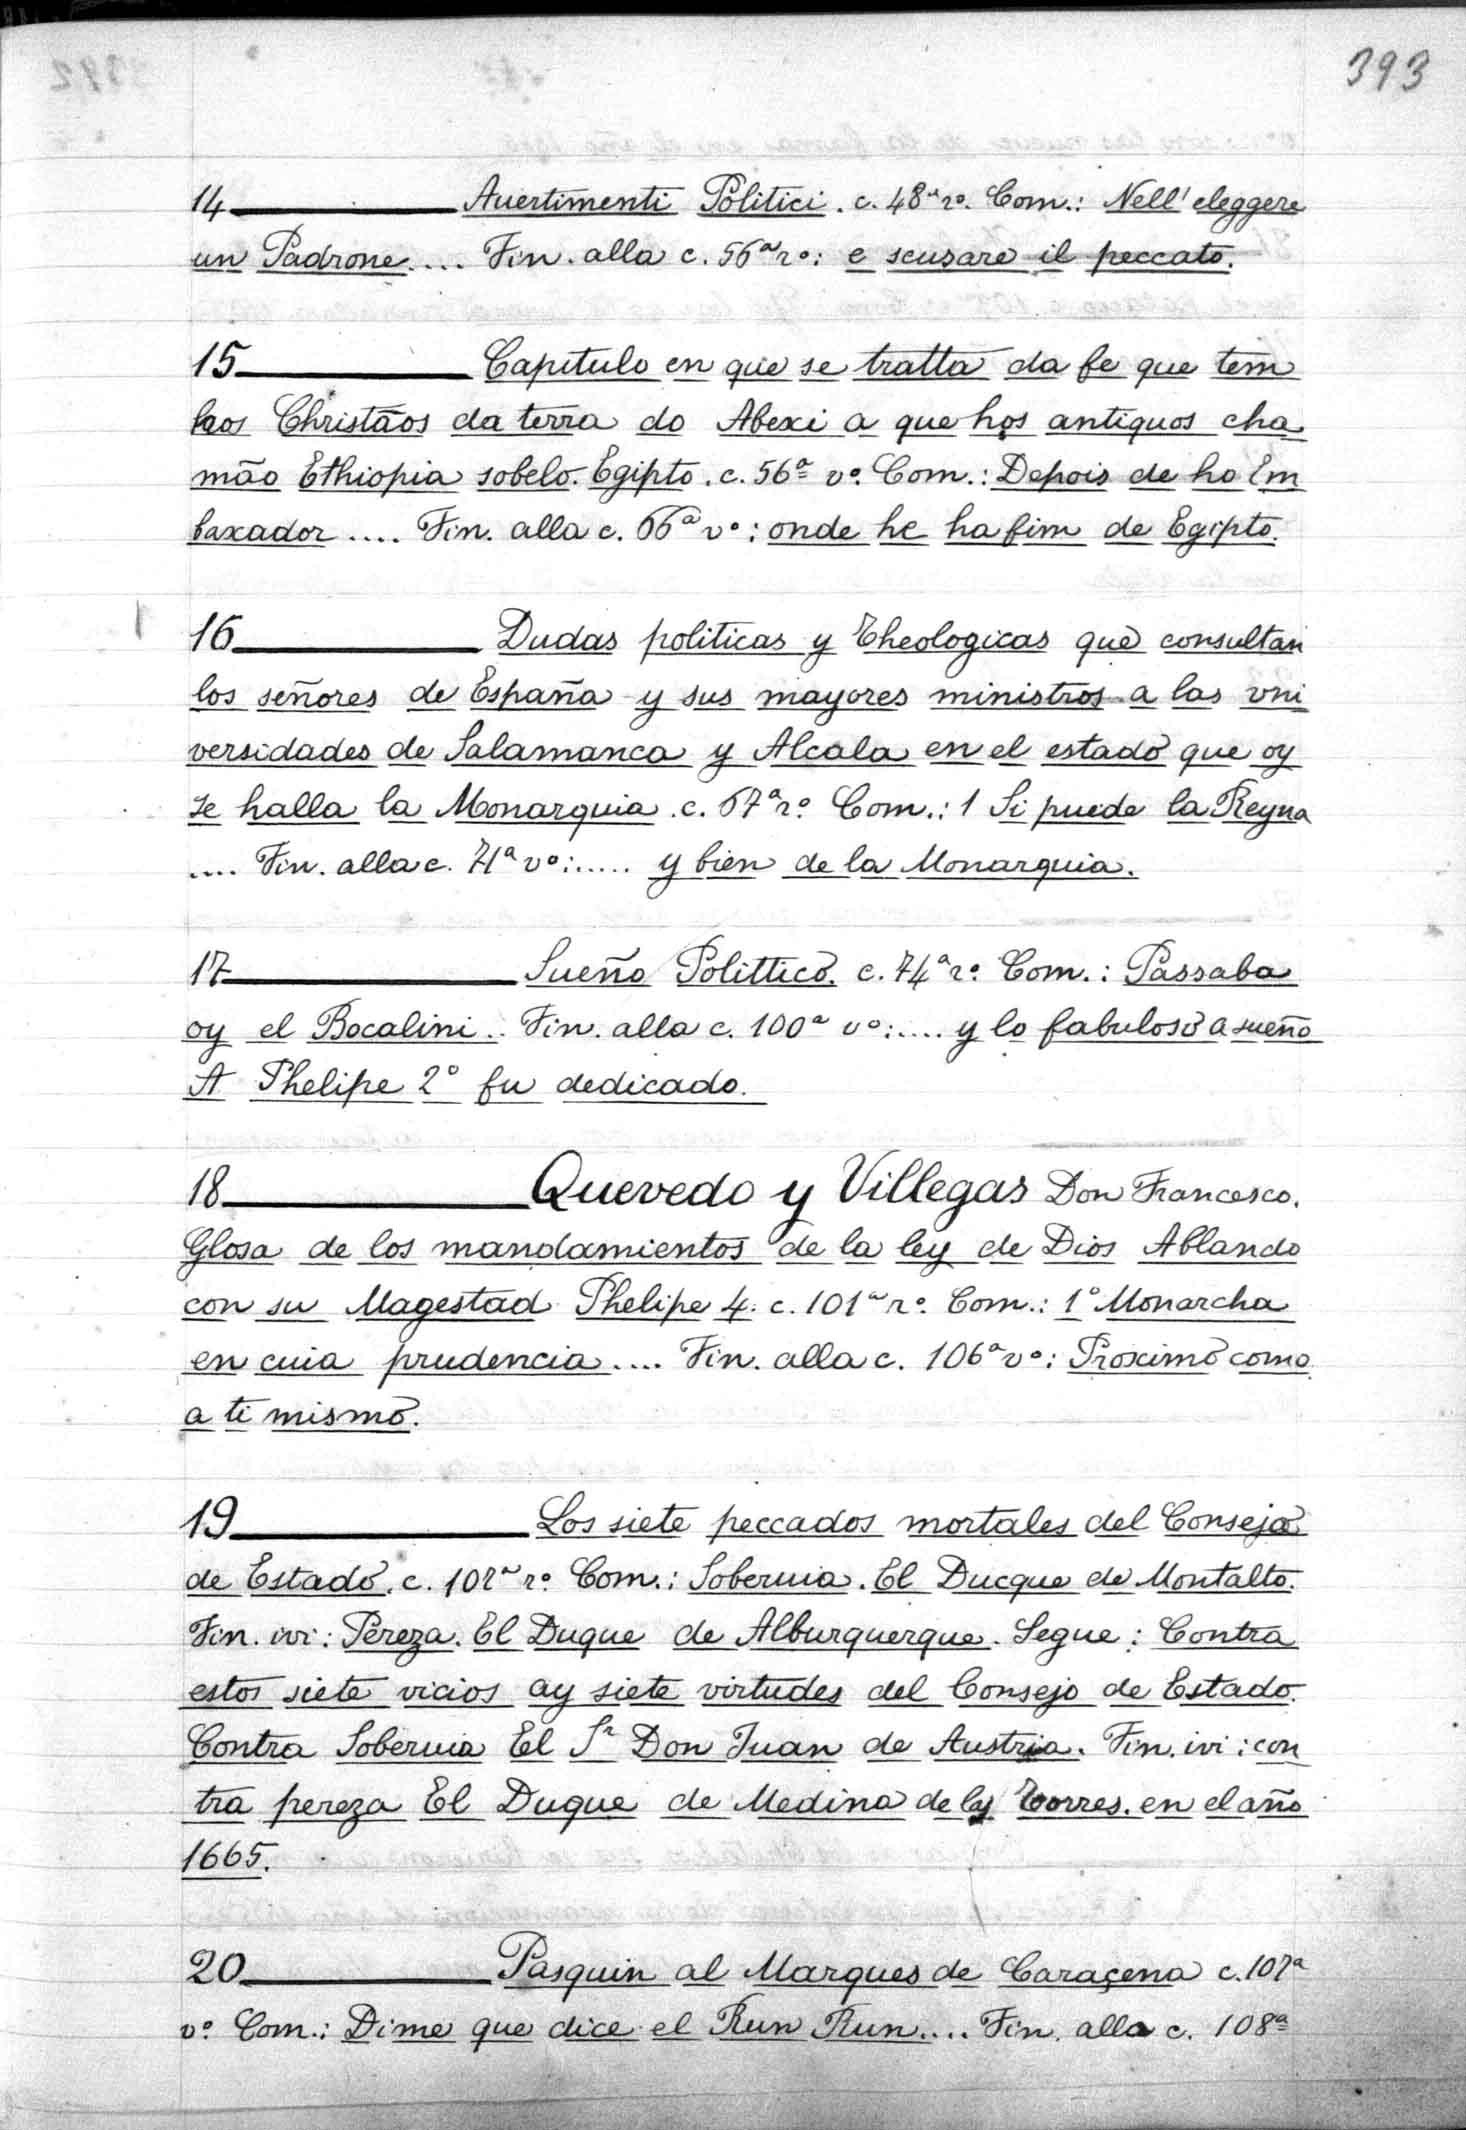 393
14 Auertimenti Politici. c. 48ª rº. Com.: Nell' eleggere
un Padrone.... Fin. alla c. 56ª rº: e scusare il peccato.
15 Capitulo en que se tratta da fe que tem
hos Christãos da terra do Abexi a que hos antiquos cha
mão Ethiopia sobelo Egipto. c. 56ª vº. Com.: Depois de ho Em
baxador .... Fin. alla c. 66ª vº: onde he ha fim de Egipto.
16 Dudas politicas y Theologicas que consultan
los señores de España y sus mayores ministros a las vni
versidades de Salamanca y Alcala en el estado que oy
se halla la Monarquia. c. 67ª rº Com.: 1 Si puede la Reyna
.... Fin. alla c. 71ª vº:..... y bien de la Monarquia.
17 Sueño Polittico. c. 74ª rº. Com.: Passaba
oy el Bocalini.. Fin. alla c. 100ª vº:.... y lo fabuloso a sueño
A Phelipe 2º fu dedicado.
18 Quevedo y Villegas Don Francesco.
Glosa de los mandamientos de la ley de Dios Ablando
con su Magestad Phelipe 4. c. 101ª rº. Com.: 1º Monarcha
en cuia prudencia.... Fin. alla c. 106ª vº: Proximo como
a ti mismo.
19 Los siete peccados mortales del Consejo
de Estado. c. 107ª rº. Com.: Soberuia. El Ducque de Montalto.
Fin. ivi: Pereza. El Duque de Alburquerque. Segue: Contra
estos siete vicios ay siete virtudes del Consejo de Estado.
Contra Soberuia El Sr Don Juan de Austria. Fin. ivi: con
tra pereza El Duque de Medina de las Torres. en el año
1665.
20 Pasquin al Marques de Caraçena c. 107ª
vº Com.: Dime que dice el Run Run.... Fin. alla c. 108ª